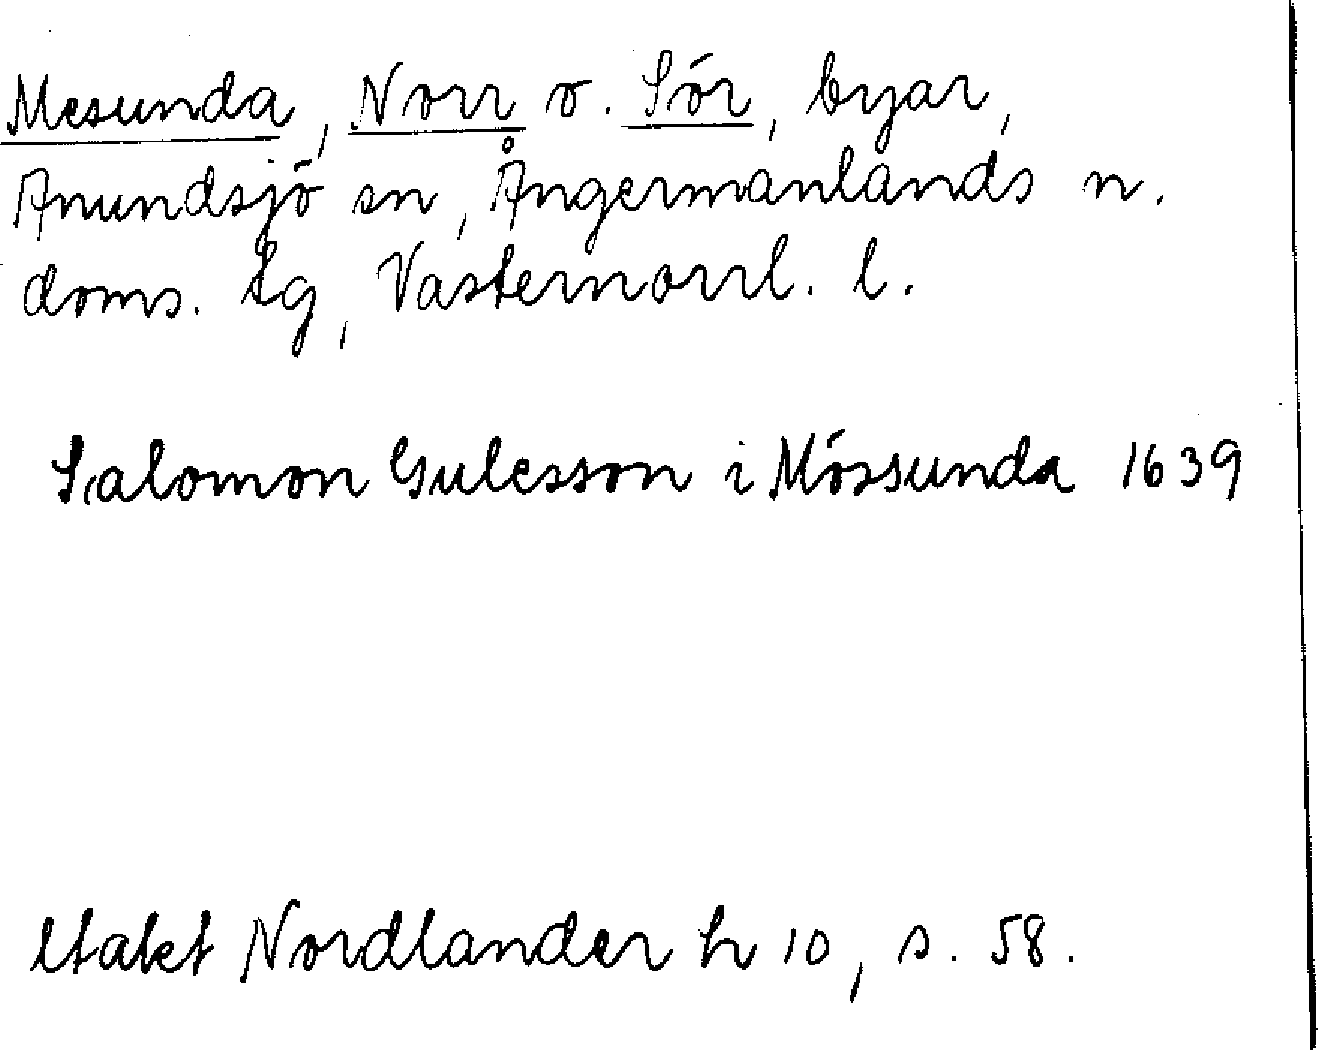 Mesunda, Norr o. Sör, byar,
Anundsjö sn, Ångermanlands n.
doms. lg, Västernorrl. l.
Salomon Gulesson i Mössunda 1639
Nordlander h 10, s. 58.